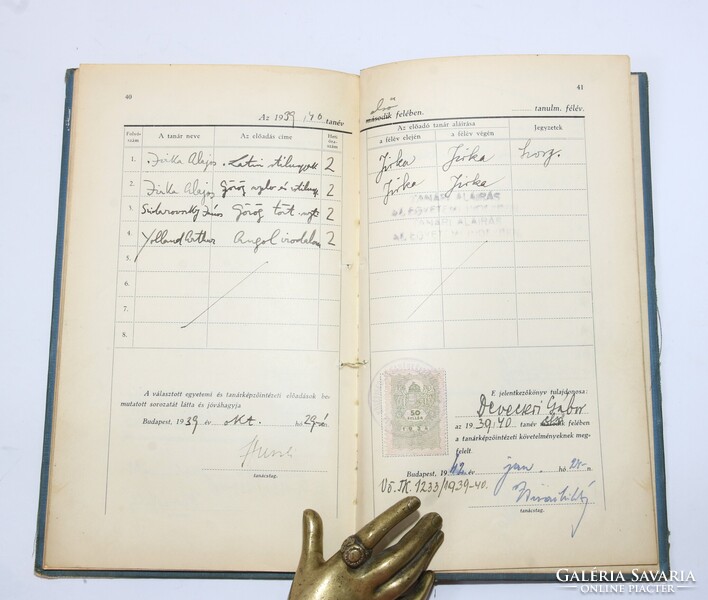 40
Az 1939/40 tanév
A tanár neve
Az előadás címe
1. Jirka Alajos Latin stílusgyak 2
2. Jirka Alajos Görög nyelv és stílusgy. 2
3. Görög tört. 2
4. Yolland Arthur Angol irodalom 2
5.
6.
7.
8.
A választott egyetemi és tanárképzőintézeti előadások be-
mutatott sorozatát látta és jóváhagyja
Budapest, 1939 év okt. hó 29-n.
tanácstag.
41
első
második felében. tanulm. félév.
Az előadó tanár aláírása
Jegyzetek
a félév elején
a félév végén
Jirka Jirka
Jirka Jirka
TANÁRI ALÁÍRÁS
TANÁRI ALÁÍRÁS
50
FILLÉR
E jelentkezőkönyv tulajdonosa:
Devecseri Gábor
az 1939/40 tanév első felében
a tanárképzőintézeti követelményeknek meg-
felelt.
Budapest, 1942 év jan. hó 21-n.
Vö. TK. 1233/1939-40.
tanácstag.
GALÉRIA SAVARIA
ONLINE PIACTÉR